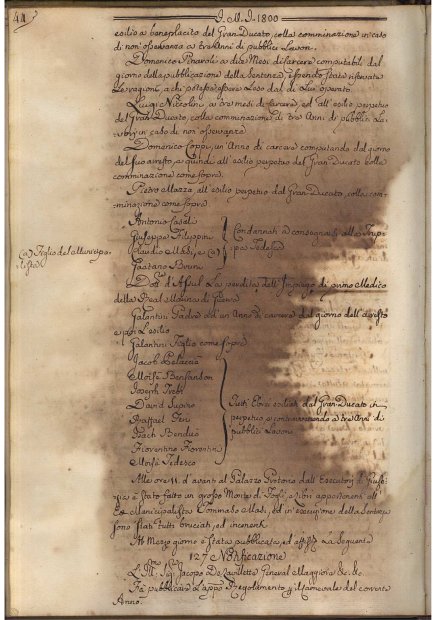 411
I. M. I. 1800
esilio a beneplacito del Gran Ducato, colla comminazione in caso
di non osservanza a tre Anni di pubblici Lavori.
Domenico Pinavale a dire Mesi di Carcere computabili dal
giorno della pubblicazione della Sentenza essendo state riservate
Le ragioni, a chi potesse essere Leso dal di Lui operato.
Luigi Niccolini, a tre mesi di carcere, ed all' esilio perpetuo
del Gran Ducato, colla comminazione di tre Anni di pubblici La-
vori in caso di non osservanza
Domenico Coppi, un Anno di carcere computando dal giorno
del suo arresto, e quindi all' esilio perpetuo del Gran Ducato colla
comminazione come sopra.
Pietro Mazza all' esilio perpetuo dal Gran Ducato, colla com-
minazione come sopra
Antonio Casal
Giuseppe Filippini
Claudio Masi, e (a)
Gaetano Bruni
Condannati a consegnarsi alla Trup-
pa Tedesca
(a) Figlio del Municipa-
lista
Dott. d'Azul La perdita dell' Impiego di primo Medico
della Real Marina di Guerra
Galantini Padre ad un' Anno di carcere dal giorno dell' arresto
e poi L'esilio
Galantini Figlio come sopra
Jacob
Moisè Bensandon
Joseph Trebi
David Supino
Raffael Feri
Isach Bendus
Fiorentino Fiorentini
Moisè Tedesco
Tutti Ebrei esiliati dal Gran Ducato in
perpetuo e contravvenendo a tre Anni di
pubblici Lavori
Alle ore 11. d'avanti al Palazzo Pretorio dall' Esecutori di Giusti-
zia, è stato fatto un grosso Monte di Fogli, e Libri appartenenti all'
Ex Municipalista Tommaso Masi, ed in esecuzione della Sentenza
sono stati tutti bruciati, ed inceneriti
Al Mezzo giorno è stata pubblicata, ed affissa La Seguente
127 Notificazione
L' Ill. Sig. Jacopo De Lavillette General Maggiore &c. &c.
Fa pubblicare l'appo Regolamento p il Carnevale del corrente
Anno.